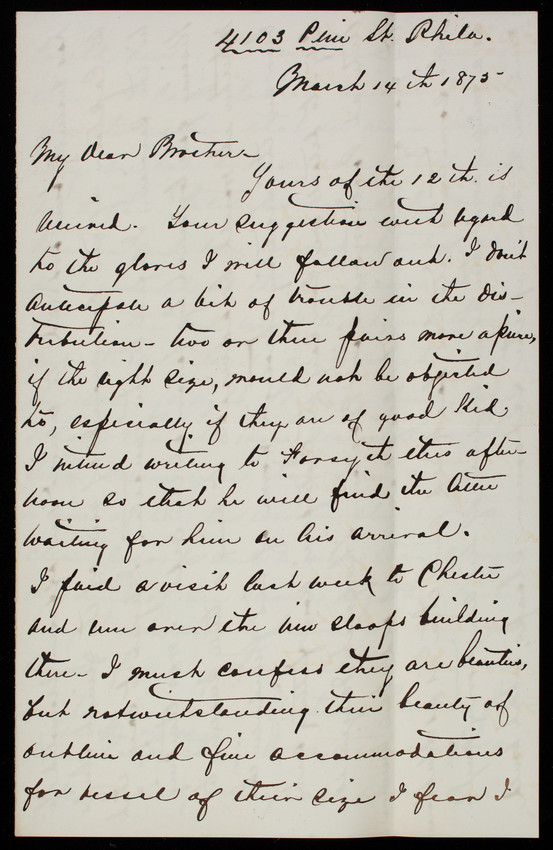 4103 Pine St. Phila.
March 14th 1875
My Dear Brother—
Yours of the 12th. is
received. Your suggestion with regard
to the gloves I will follow out. I don't
anticipate a bit of trouble in the dis-
tribution — two or three pairs more apiece,
if the right size, would not be objected
to, especially if they are of good Kid
I intend writing to Forsyth this after-
noon so that he will find the letter
waiting for him on his arrival.
I paid a visit last week to Chester
and was over the new sloops building
there — I must confess they are beauties,
but notwithstanding their beauty of
outline and fine accommodations
for vessel of their size I fear I